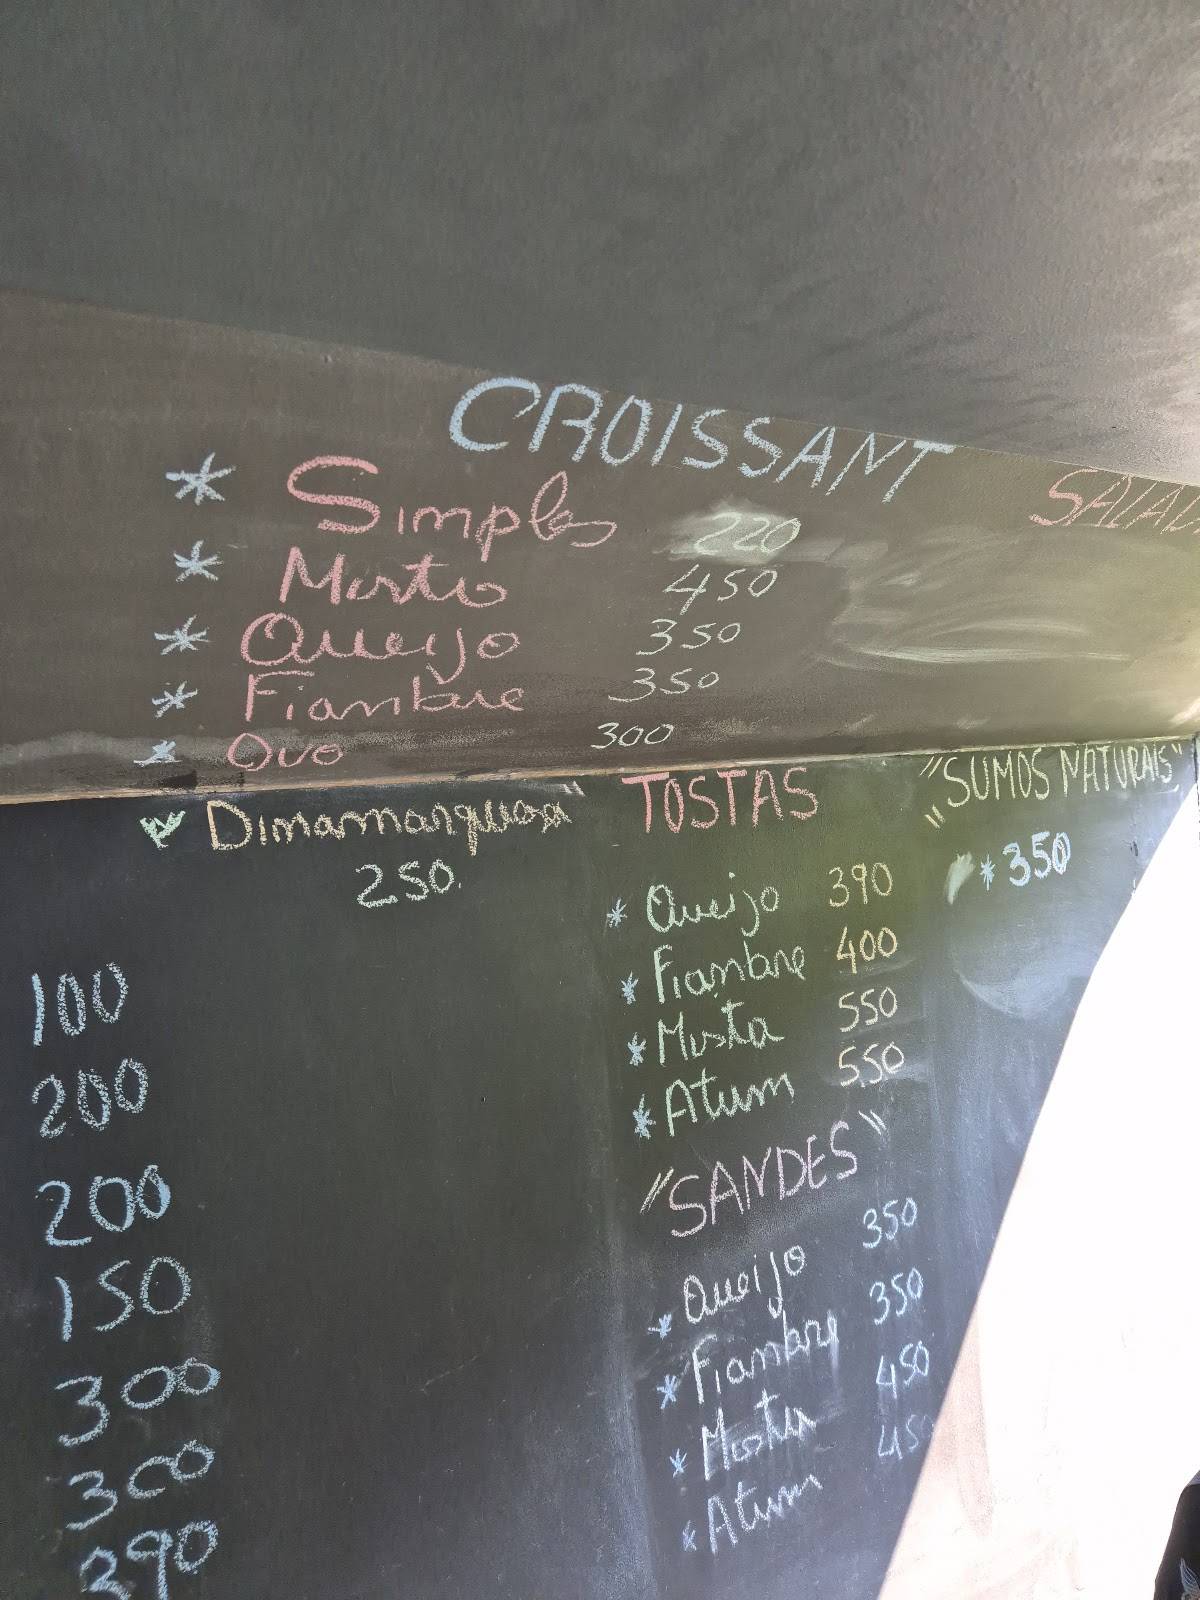 CROISSANT
* Simples 220
* Misto 450
* Queijo 350
* Fiambre 350
* Ovo 300
SALAD
Dinamarquesa"
250
100
200
200
150
300
300
390
TOSTAS
* Queijo 390
* Fiambre 400
* Mista 550
* Atum 550
"SANDES"
* Queijo 350
* Fiambre 350
* Mista 450
* Atum 45
"SUMOS NATURAIS"
* 350